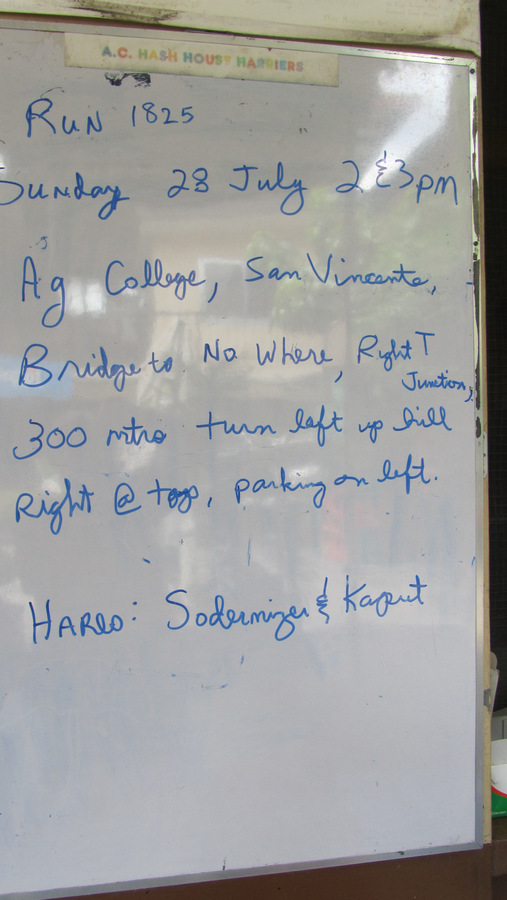 A.C. HASH HOUSE HARRIERS
RUN 1825
Sunday 28 July 2 & 3pm
Ag College, San Vincente,
Bridge to No Where, Right T
Junction,
300 mtrs turn left up hill
Right @ top, parking on left.
HARES: Sodermizer & Kaput